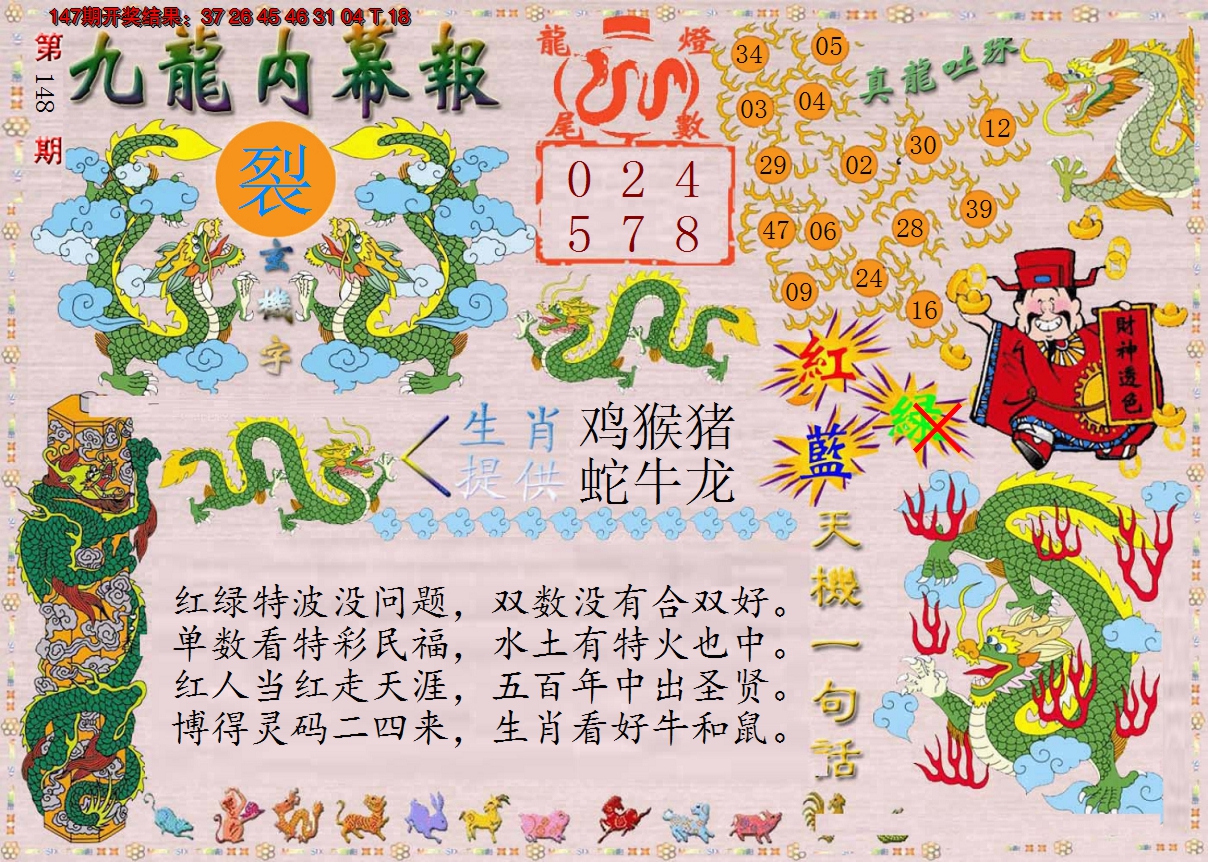 147期开奖结果：37 26 45 46 31 04 T 18
第148期
九龍内幕報
裂
玄機字
龍燈
尾數
0 2 4
5 7 8
真龍吐珠
34
05
03
04
12
30
29
02
39
47
06
28
24
09
16
財神透色
紅
綠
藍
生肖 鸡猴猪
提供 蛇牛龙
天機一句话
红绿特波没问题，双数没有合双好。
单数看特彩民福，水土有特火也中。
红人当红走天涯，五百年中出圣贤。
博得灵码二四来，生肖看好牛和鼠。